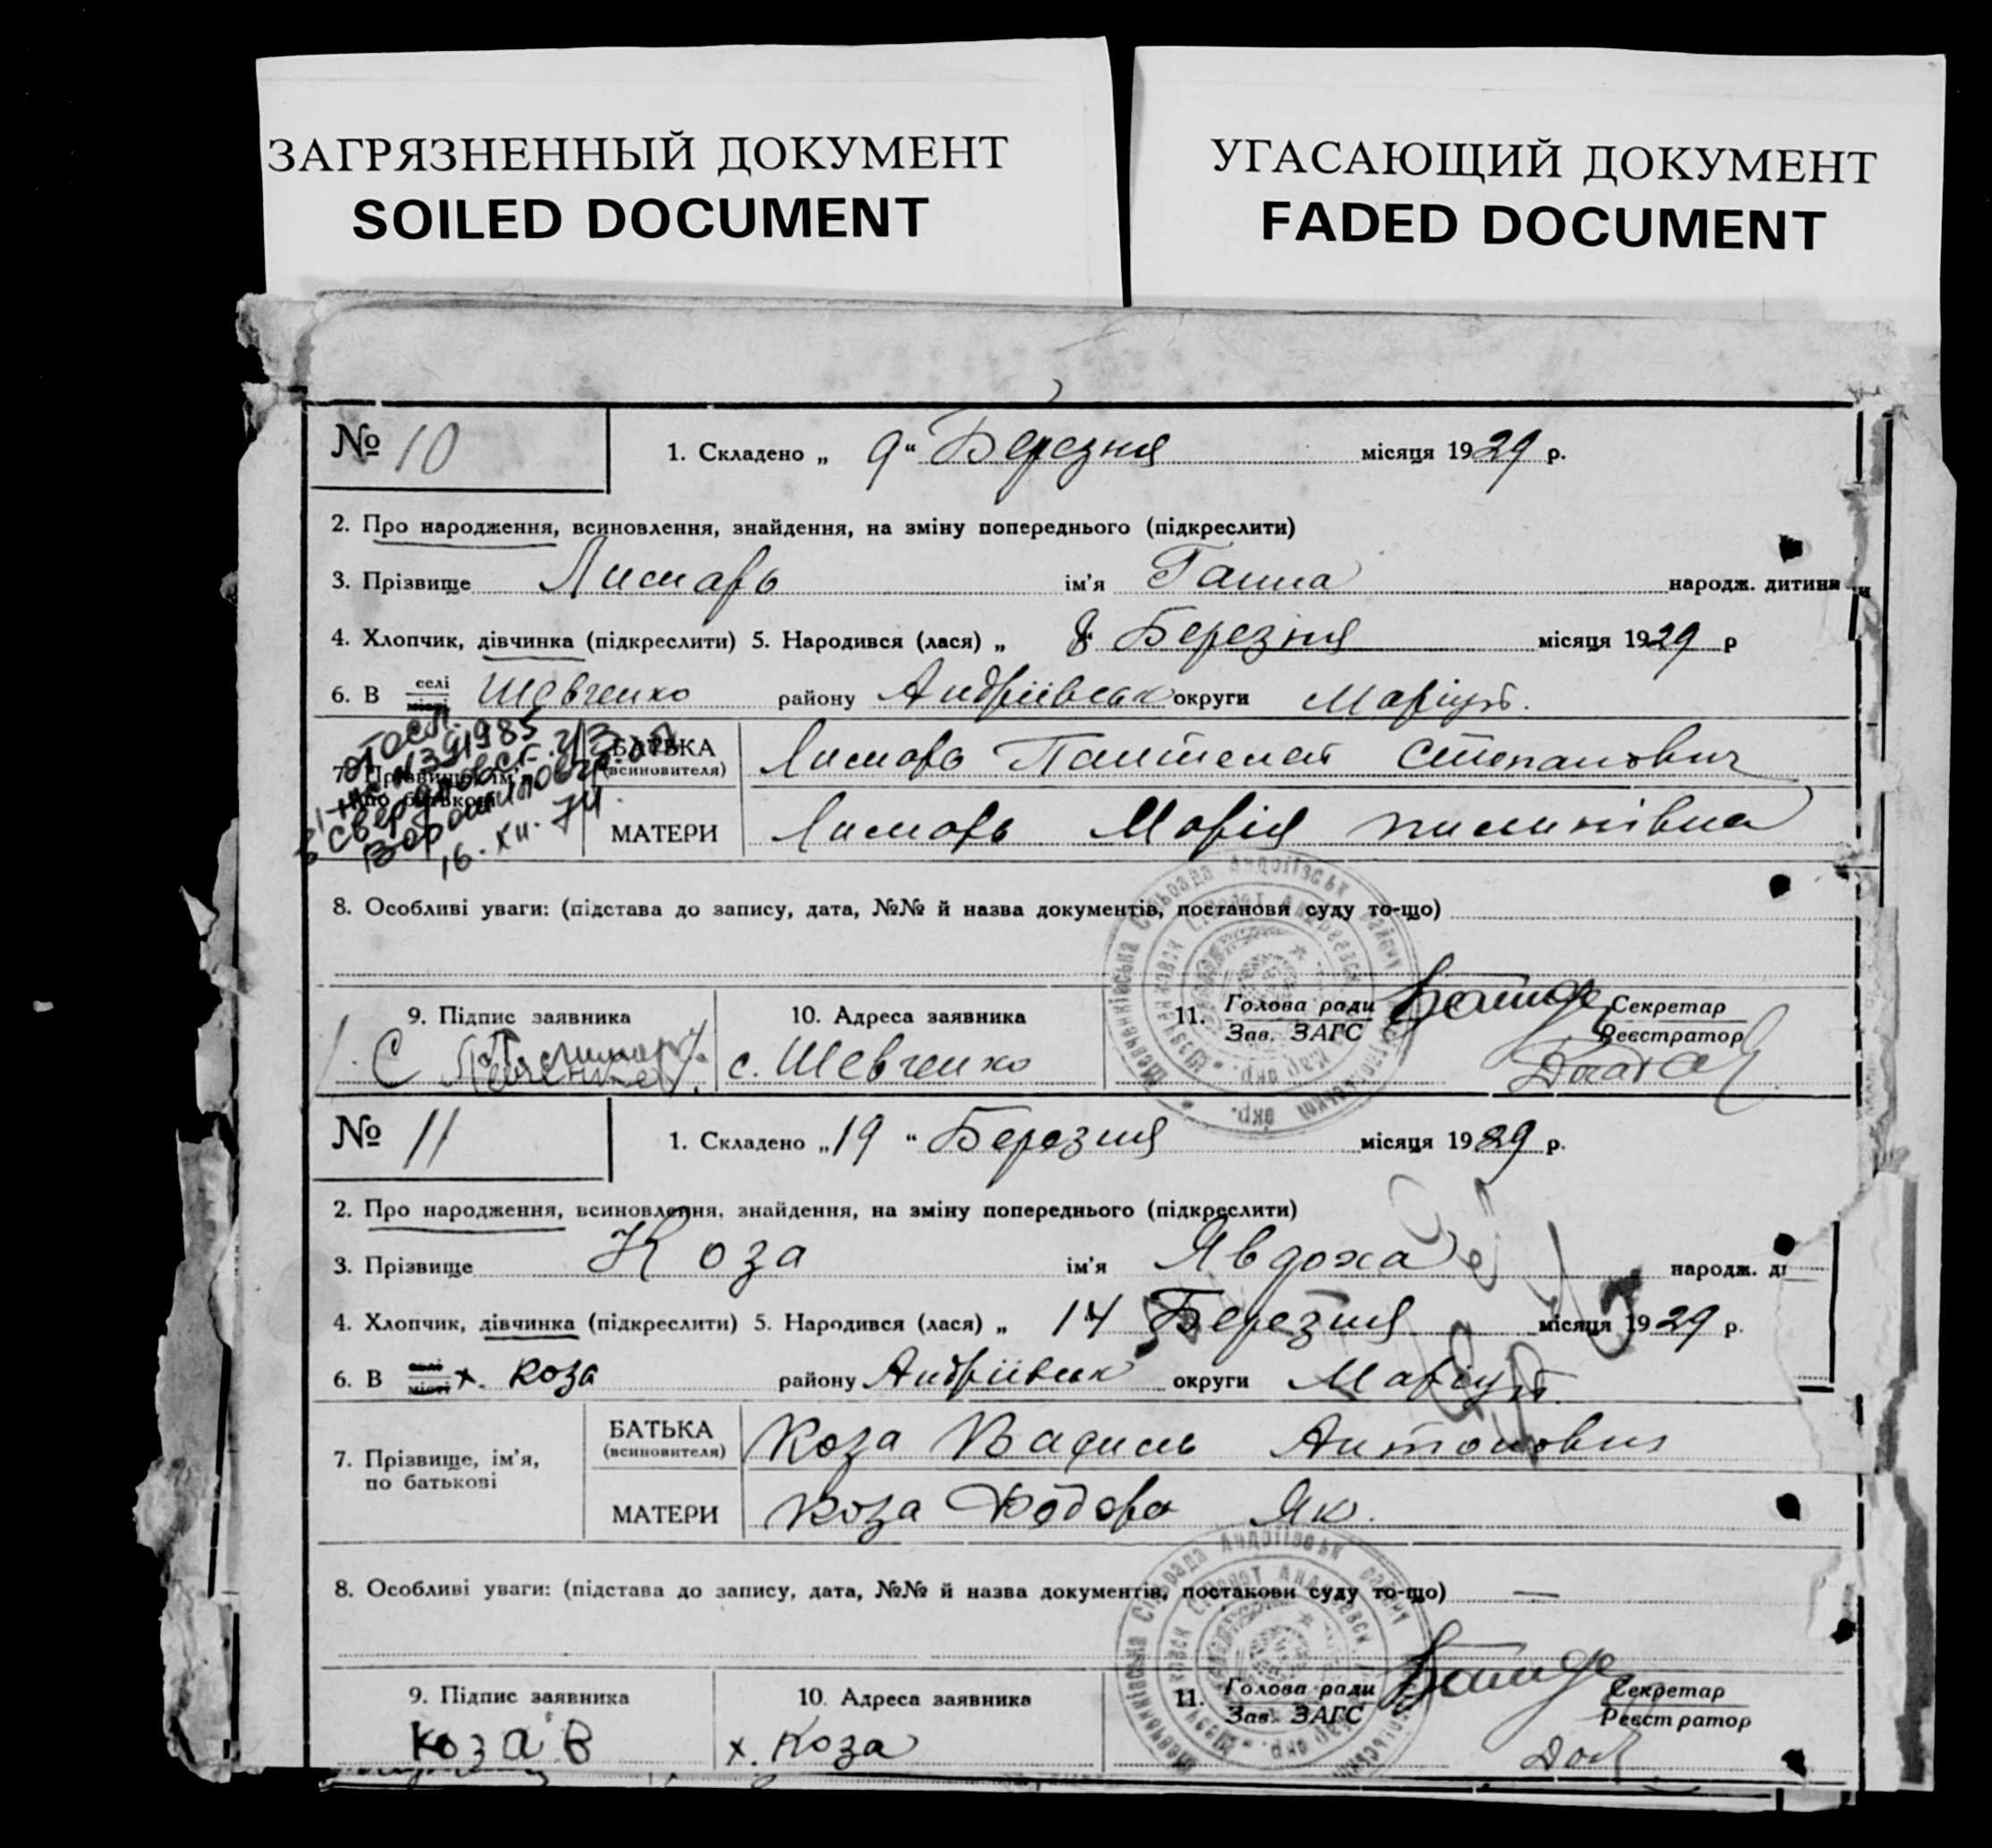 ЗАГРЯЗНЕННЫЙ ДОКУМЕНТ
SOILED DOCUMENT
УГАСАЮЩИЙ ДОКУМЕНТ
FADED DOCUMENT
№ 10
1. Складено „ 9 “ Березня місяця 1929 р.
2. Про народження, всиновлення, знайдення, на зміну попереднього (підкреслити)
3. Прізвище Лимарь ім'я Ганна народж. дитини
4. Хлопчик, дівчинка (підкреслити) 5. Народився (лася) „ 8 Березня місяця 1929 р
6. В селі місті Шевченко району Андріївськ округи Маріуп.
7. Прізвище, ім'я, по батькові
БАТЬКА (всиновителя) Лимарь Пантелей Степанович
МАТЕРИ Лимарь Марія Пилипівна
16. XII. 74
8. Особливі уваги: (підстава до запису, дата, №№ й назва документів, постанови суду то-що)
9. Підпис заявника
10. Адреса заявника
с. Шевченко
11. Голова ради
Зав. ЗАГС
Секретар
Реєстратор
№ 11
1. Складено „ 19 “ Березня місяця 1929 р.
2. Про народження, всиновлення, знайдення, на зміну попереднього (підкреслити)
3. Прізвище Коза ім'я Явдоха народж. ди
4. Хлопчик, дівчинка (підкреслити) 5. Народився (лася) „ 14 Березня місяця 1929 р.
6. В селі місті х. Коза району Андріївськ округи Маріуп.
7. Прізвище, ім'я, по батькові
БАТЬКА (всиновителя) Коза Василь Антонович
МАТЕРИ Коза Хведора Як.
8. Особливі уваги: (підстава до запису, дата, №№ й назва документів, постанови суду то-що) —
9. Підпис заявника
Коза В
10. Адреса заявника
х. Коза
11. Голова ради
Зав. ЗАГС
Секретар
Реєстратор